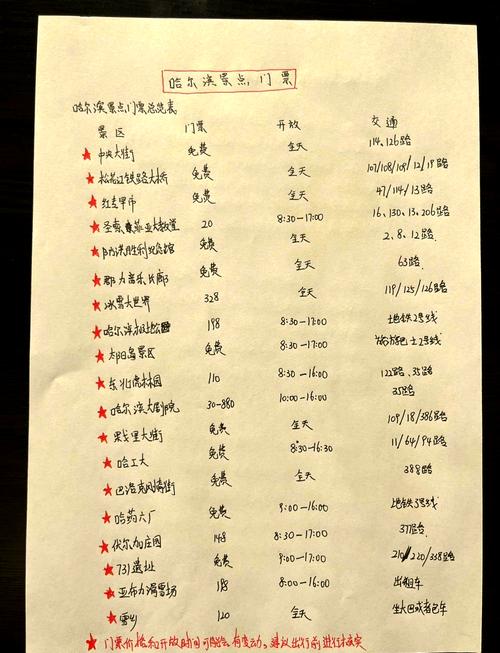 哈尔滨景点门票
哈尔滨景点门票总览表
景区 门票 开放 交通
★中央大街 免费 全天 114、126路
★松花江铁路大桥 免费 全天 107/108/109/12/18路
★红专早市 免费 全天 47/114/13路
★圣索菲亚大教堂 20 8:30-17:00 16、130、13、206路
★防洪胜利纪念馆 免费 全天 2、8、12路
★群力音乐长廊 免费 全天 63路
★冰雪大世界 328 全天 119/125/126路
★哈尔滨 198 8:30-17:00 地铁2号线
★太阳岛景区 免费 8:30-17:00 2号线
★东北虎林园 110 8:30-16:00 122路、35路
★哈尔滨大剧院 30-880 10:00-16:00 35路
★果戈里大街 免费 全天 109/18/386路
★哈工大 免费 8:30-16:30 11/64/94路
★巴洛克风情街 免费 全天 388路
★哈药六厂 免费 9:00-16:00 地铁3号线
★伏尔加庄园 148 8:30-17:00 377路
★731遗址 免费 9:00-17:00 210/220/338路
★亚布力滑雪场 8:00-16:00 出租车
★雪乡 120 全天 坐大巴或者包车
★门票价格和开放时间可能会有变动，建议出行前进行核实